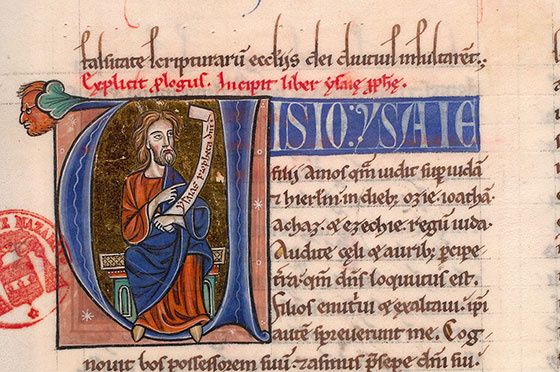 falsitate scripturarū eccl̄ijs dei diucius insultarent.;
Explicit p̄logus. Incipit liber ysaię p̄phę.
VISIO: YSAIE
ysaias propheta
filij Amos qm̄ uidit sup̄ iudā
& hierłm in dieb; ozie. ioathā.
achaz. & ezechie. regū iuda.
Audite cęli & aurib; p̄cipe
t̄ra. qm̄ dn̄s loquutus est.
Filios enutriui & exaltaui. ip̄i
autē spreuerunt me. Cog
nouit bos possessorem suū. & asinus p̄sepe dn̄i sui.